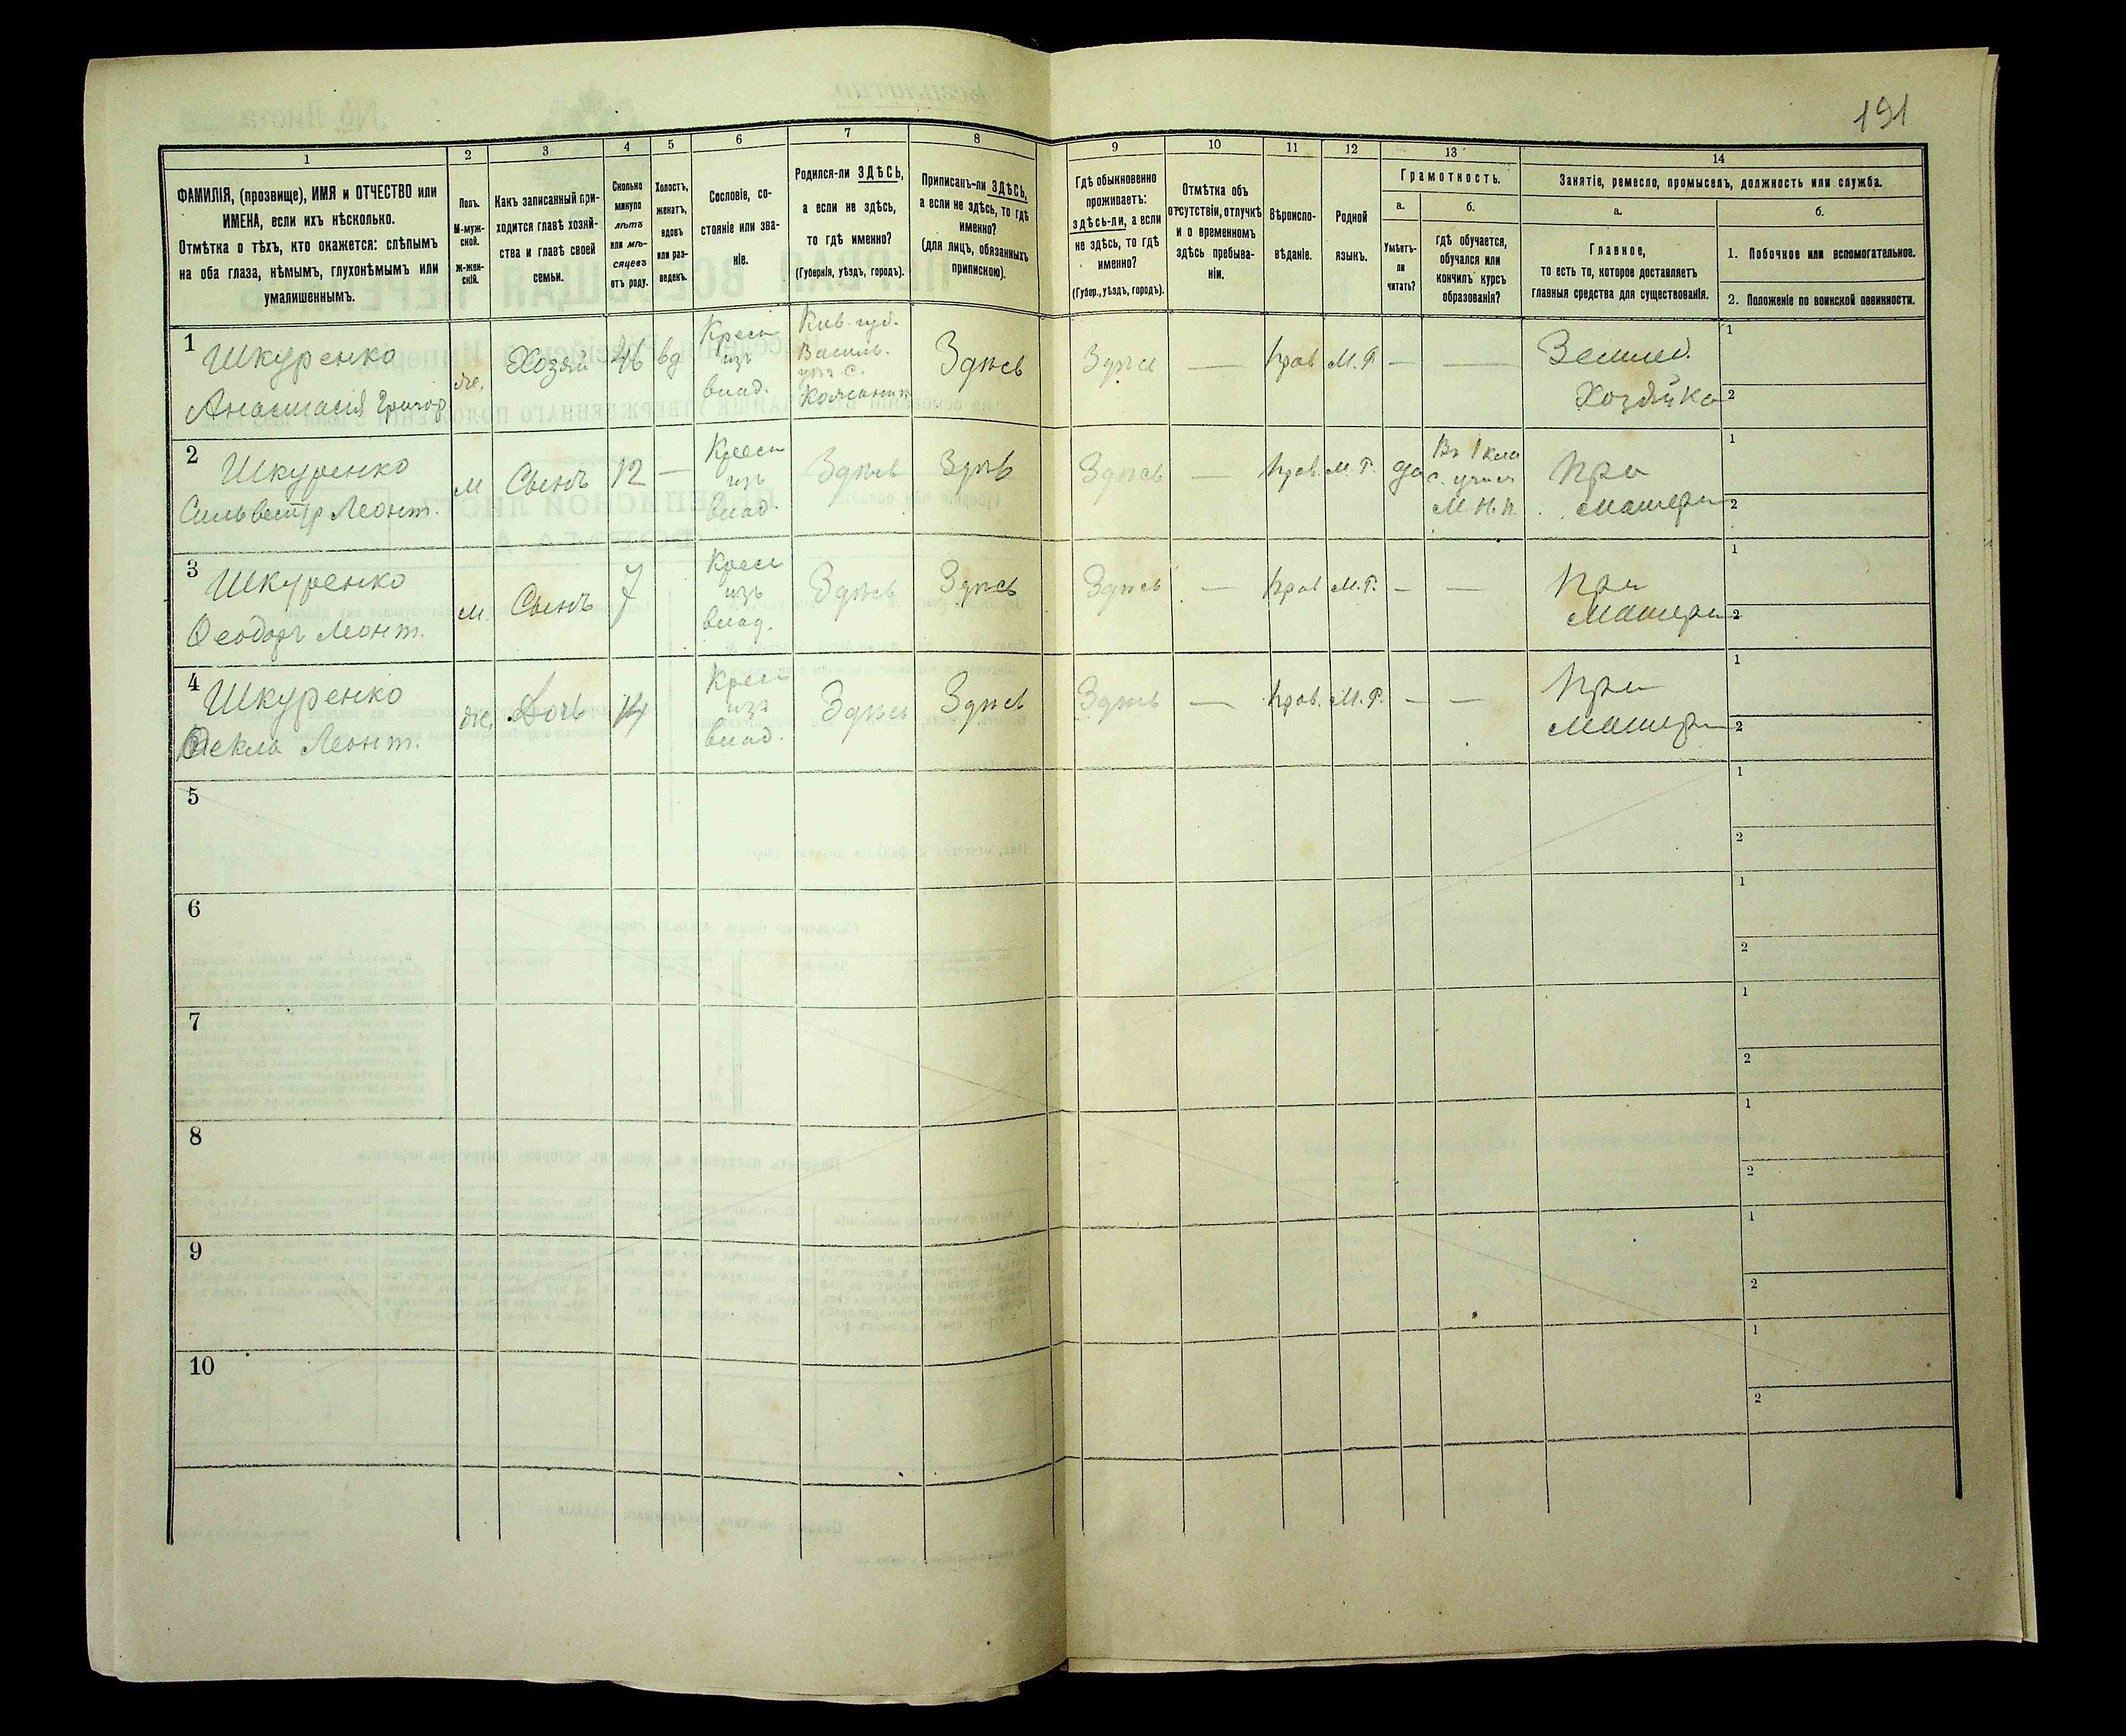 191
1
2
3
4
5
6
7
8
9
10
11
12
13
14
ФАМИЛІЯ, (прозвище), ИМЯ и ОТЧЕСТВО или
ИМЕНА, если ихъ нѣсколько.
Отмѣтка о тѣхъ, кто окажется: слѣпымъ
на оба глаза, нѣмымъ, глухонѣмымъ или
умалишеннымъ.
Полъ.
М-муж-
ской.
Ж-жен-
скій.
Какъ записанный при-
ходится главѣ хозяй-
ства и главѣ своей
семьи.
Сколько
минуло
лѣтъ
или мѣ-
сяцевъ
отъ роду.
Холостъ,
женатъ,
вдовъ
или раз-
веденъ.
Сословіе, со-
стояніе или зва-
ніе.
Родился-ли ЗДѢСЬ,
а если не здѣсь,
то гдѣ именно?
(Губернія, уѣздъ, городъ).
Приписанъ-ли ЗДѢСЬ,
а если не здѣсь, то гдѣ
именно?
(для лицъ, обязанныхъ
припискою).
Гдѣ обыкновенно
проживаетъ:
здѣсь-ли, а если
не здѣсь, то гдѣ
именно?
(Губер., уѣздъ, городъ).
Отмѣтка объ
отсутствіи, отлучкѣ
и о временномъ
здѣсь пребыва-
ніи.
Вѣроиспо-
вѣданіе.
Родной
языкъ.
Грамотность.
а.
Умѣетъ-
ли
читать?
б.
гдѣ обучается,
обучался или
кончилъ курсъ
образованія?
Занятіе, ремесло, промыселъ, должность или служба.
а.
Главное,
то есть то, которое доставляетъ
главныя средства для существованія.
б.
1. Побочное или вспомогательное.
2. Положеніе по воинской повинности.
1
Шкуренко
Анастасія Григор
Же.
Хозяй
46
вд
Крест
изъ
влад.
Кив. губ.
Василь.
уѣз. с.
Здѣсь
Здѣсь
—
Прав
М. Р.
—
—
Землед.
Хозяйка
1
2
2
Шкуренко
Сильвестр Леонт.
М
Сынъ
12
—
Крест
изъ
влад.
Здѣсь
Здѣсь
Здѣсь
—
Прав.
М. Р.
да
Въ 1 кла
с. учил
М. Н. П.
При
матери
1
2
3
Шкуренко
Ѳеодоръ Леонт.
М.
Сынъ
7
Крест
изъ
влад.
Здѣсь
Здѣсь
Здѣсь
—
Прав
М. Р.
—
—
При
матери
1
2
4
Шкуренко
Ѳекла Леонт.
Же,
Дочь
14
Крест
изъ
влад.
Здѣсь
Здѣсь
Здѣсь
—
Прав.
М. Р.
—
—
При
матери
1
2
5
1
2
6
1
2
7
1
2
8
1
2
9
1
2
10
1
2